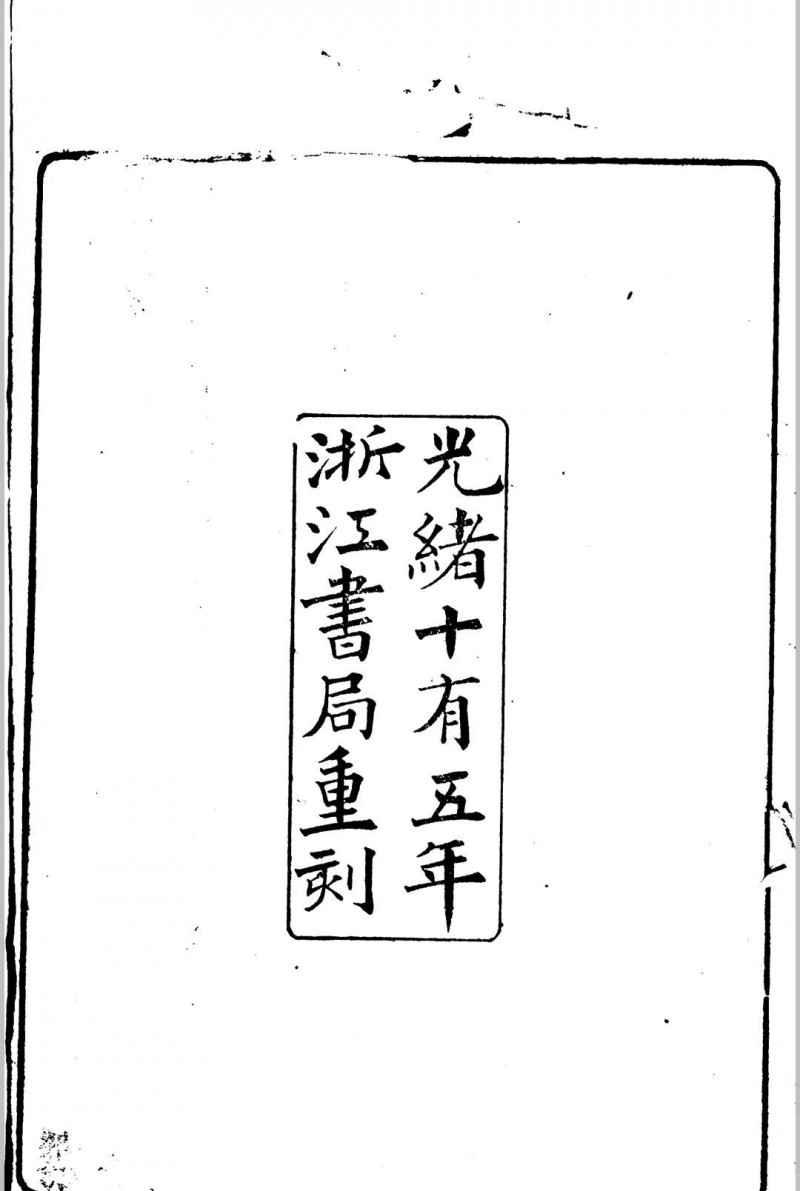 光緒十有五年
浙江書局重刻